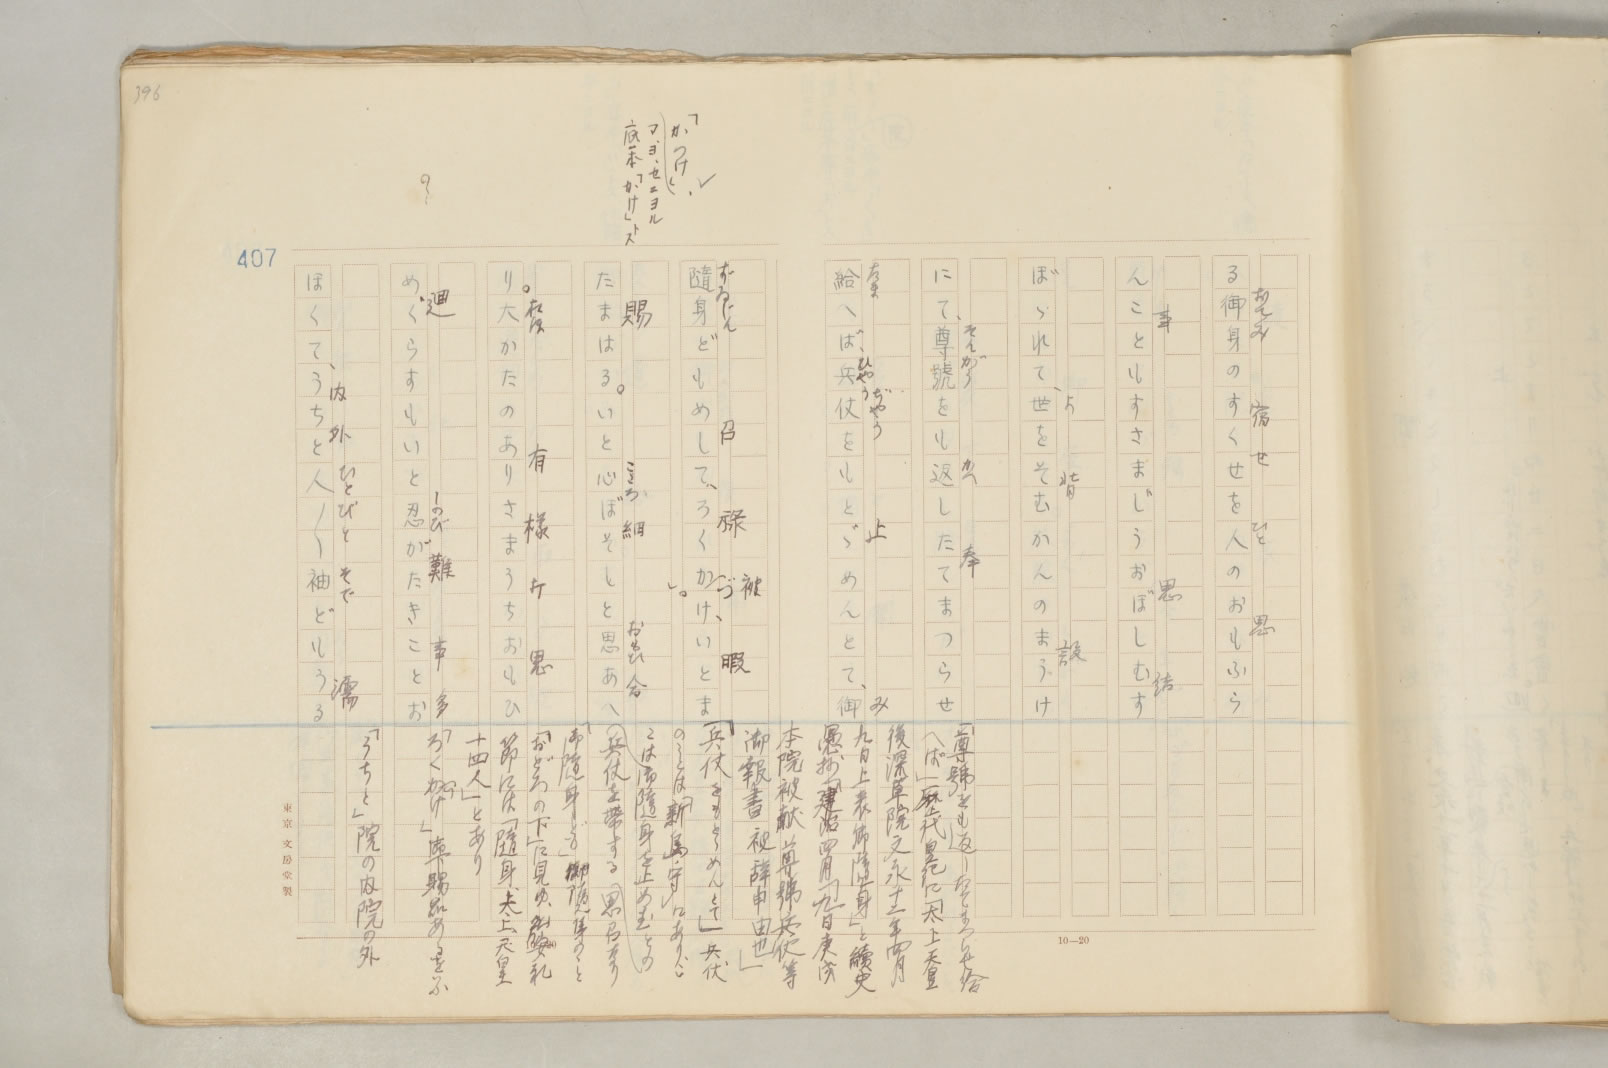 396
「かつけ」
マ、ヨ、セニヨル
底本「かけ」トス
?
407
る御身のすくせを人のおもふら
おんみ 宿せ ひと 思
んこともすさまじうおぼしむす
事 思 結
ぼゝれて、世をそむかんのまうけ
よ 背 設
にて、尊號をも返したてまつらせ
そんがう かへ 奉
給へば、兵仗をもとゞめんとて、御
たま ひやうぢやう 止 み
隨身どもめして、ろくかけ、いとま
ずゐじん 召 祿 被 づ 暇
たまはる。いと心ぼそしと思あへ
賜 こころ 細 おもひ 合
り。大かたのありさまうちおもひ
有樣 打 思
めぐらすもいと忍がたきことお
廻 しのび 難 事 多
ほくて、うちと人〳〵袖どもうる
内外 ひとびと そで 濡
「尊號をも返したてまつらせ給
へば」歴代皇紀に「太上天皇
後深草院文永十二年四月
九日上表御隨身」と續史
愚抄「建治四月「九日庚戌
本院被献尊號兵仗等
御報書被辞申由也」
「兵仗をもとゞめんとて」兵仗
のことは「新島守」にあり
こは御隨身を止め玉との
「御隨身ども」
「おどろの下」に見ゆ、
節には「隨身、太上天皇
十四人」とあり
「ろくかけ」
「うちと」院の内院の外
10—20
東京 文房堂製